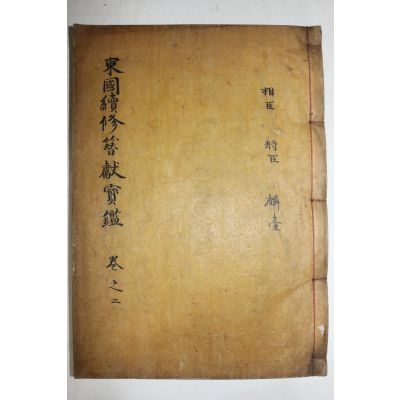 東國續修簪獻寶鑑 卷之二
相臣 將臣 麟臺